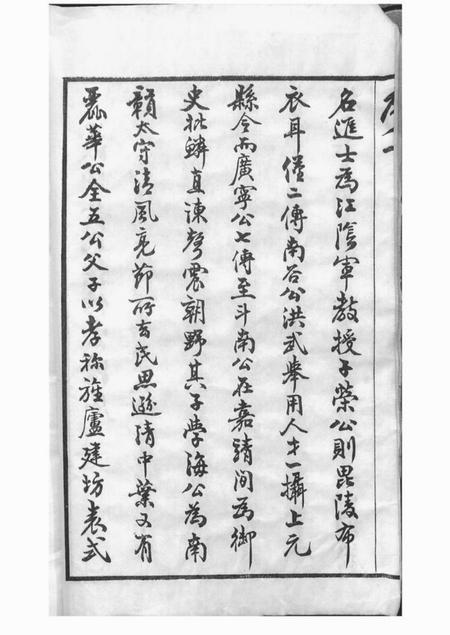 名進士為江陰軍教授子榮公則毘陵布
衣耳僅二傳南谷公洪武舉用人才一攝上元
縣令而廣寧公七傳至斗南公在嘉靖間為御
史批鱗直諫聲震朝野其子學海公為南
贛太守清風亮節所去民思遜清中葉又有
麗華公全五公父子以孝称旌廬建坊表式